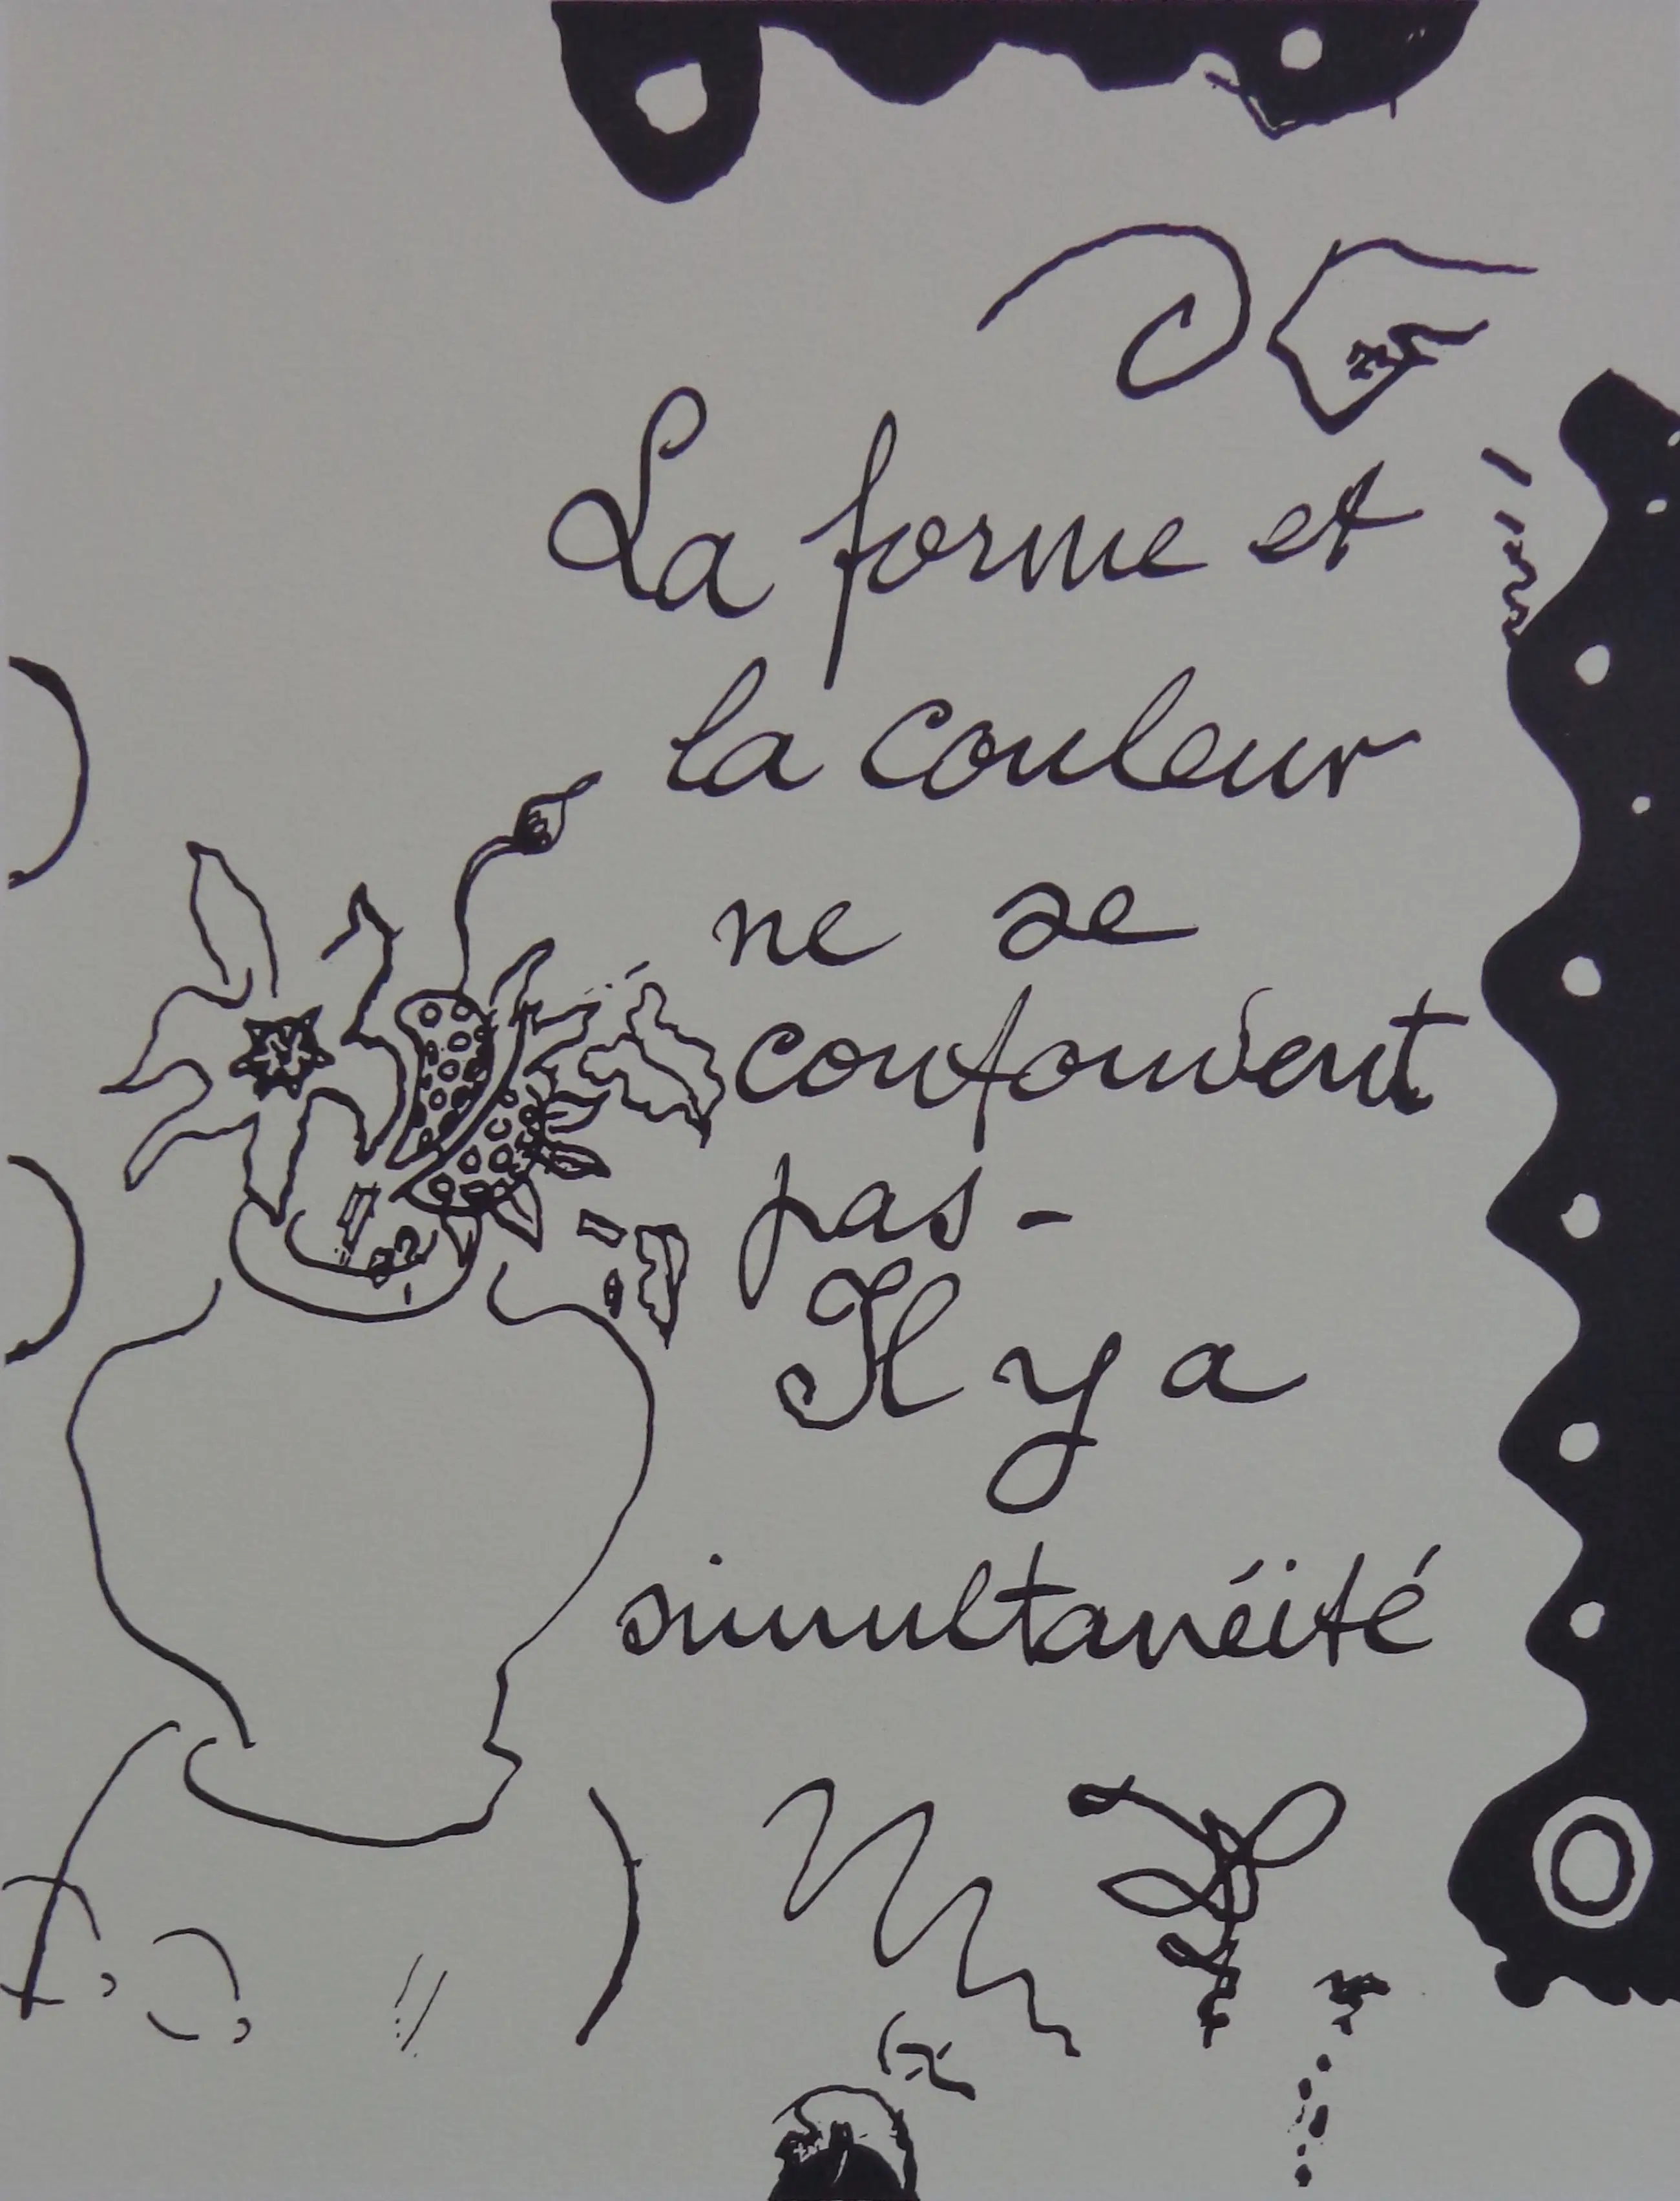 La forme et
la couleur
ne se
confondent
pas -
Il y a
simultanéité